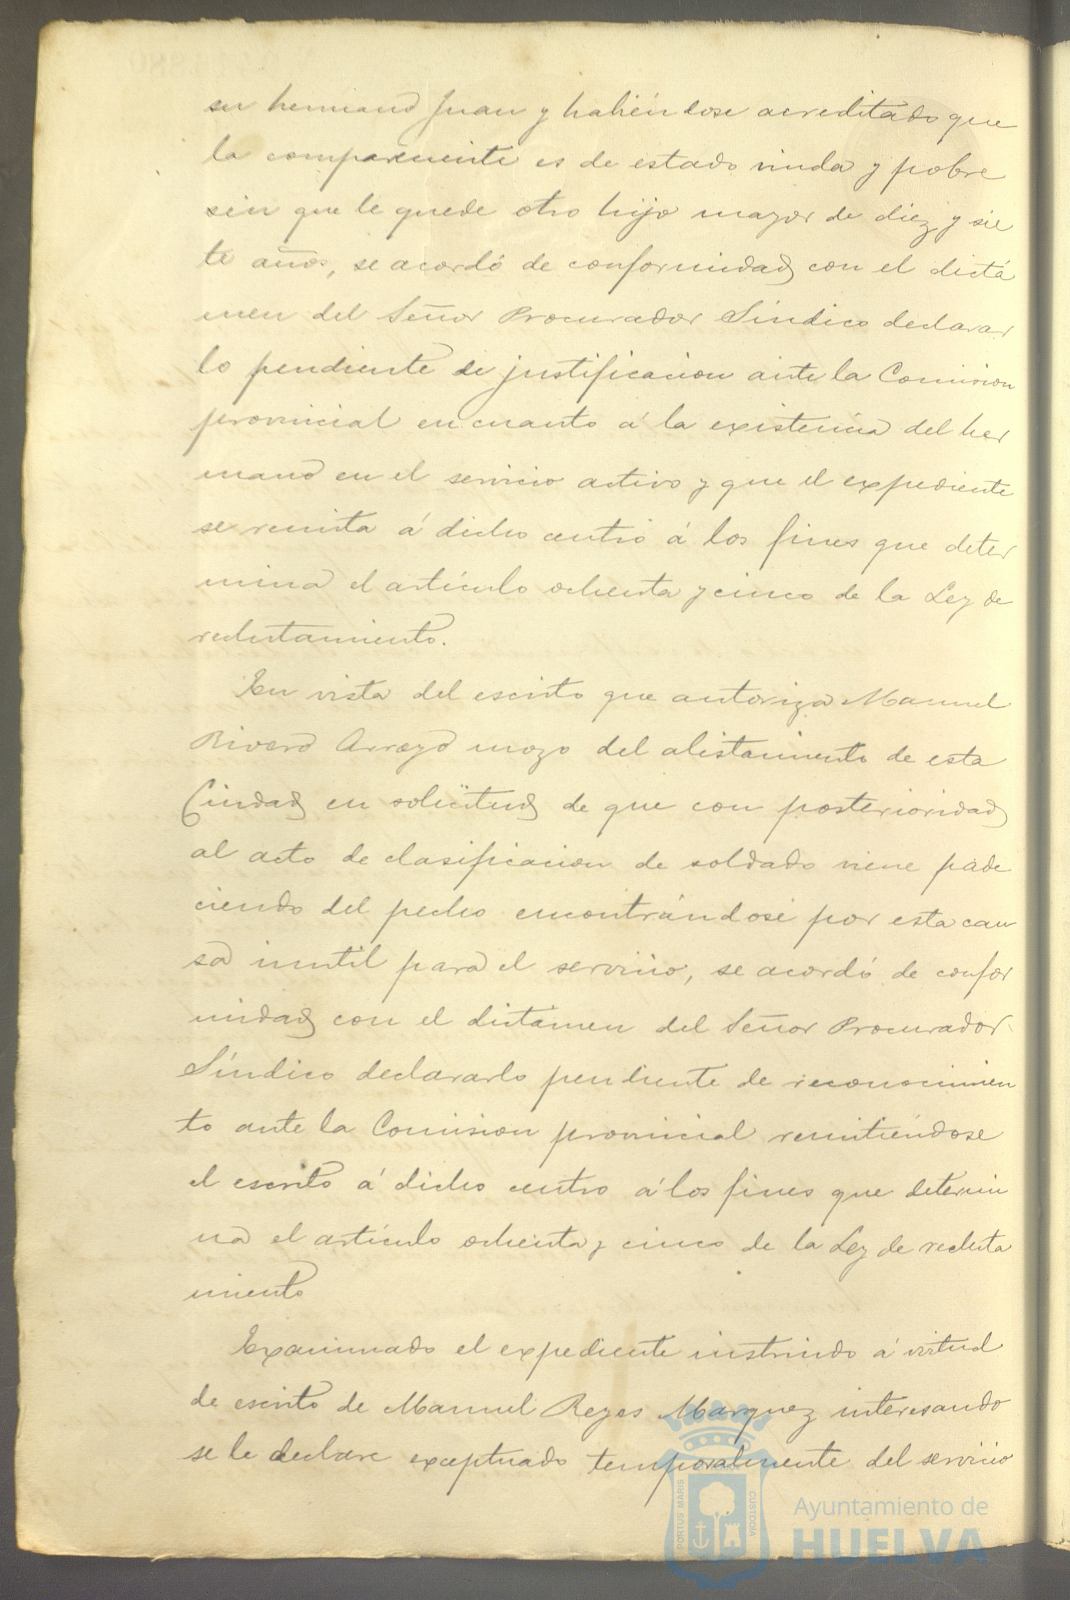 su hermano Juan y habiéndose acreditado que
la compareciente es de estado viuda y pobre
sin que le quede otro hijo mayor de diez y sie
te años, se acordó de conformidad con el dictá
men del Señor Procurador Síndico declarar
lo pendiente de justificacion ante la Comision
provincial en cuanto á la existencia del her
mano en el servicio activo y que el expediente
se remita á dicho centro á los fines que deter
mina el artículo ochenta y cinco de la Ley de
reclutamiento.
En vista del escrito que autoriza Manuel
Rivero Arroyo mozo del alistamiento de esta
Ciudad en solicitud de que con posterioridad
al acto de clasificacion de soldado viene pade
ciendo del pecho encontrándose por esta cau
sa inutil para el servicio, se acordó de confor
midad con el dictámen del Señor Procurador
Síndico declararlo pendiente de reconocimien
to ante la Comision provincial remitiéndose
el escrito á dicho centro á los fines que determi
na el artículo ochenta y cinco de la Ley de recluta
miento
Examinado el expediente instruido á virtud
de escrito de Manuel Reyes Marquez interesando
se le declare exceptuado temporalmente del servicio
PORTUS MARIS
CUSTODIA
Ayuntamiento de
HUELVA